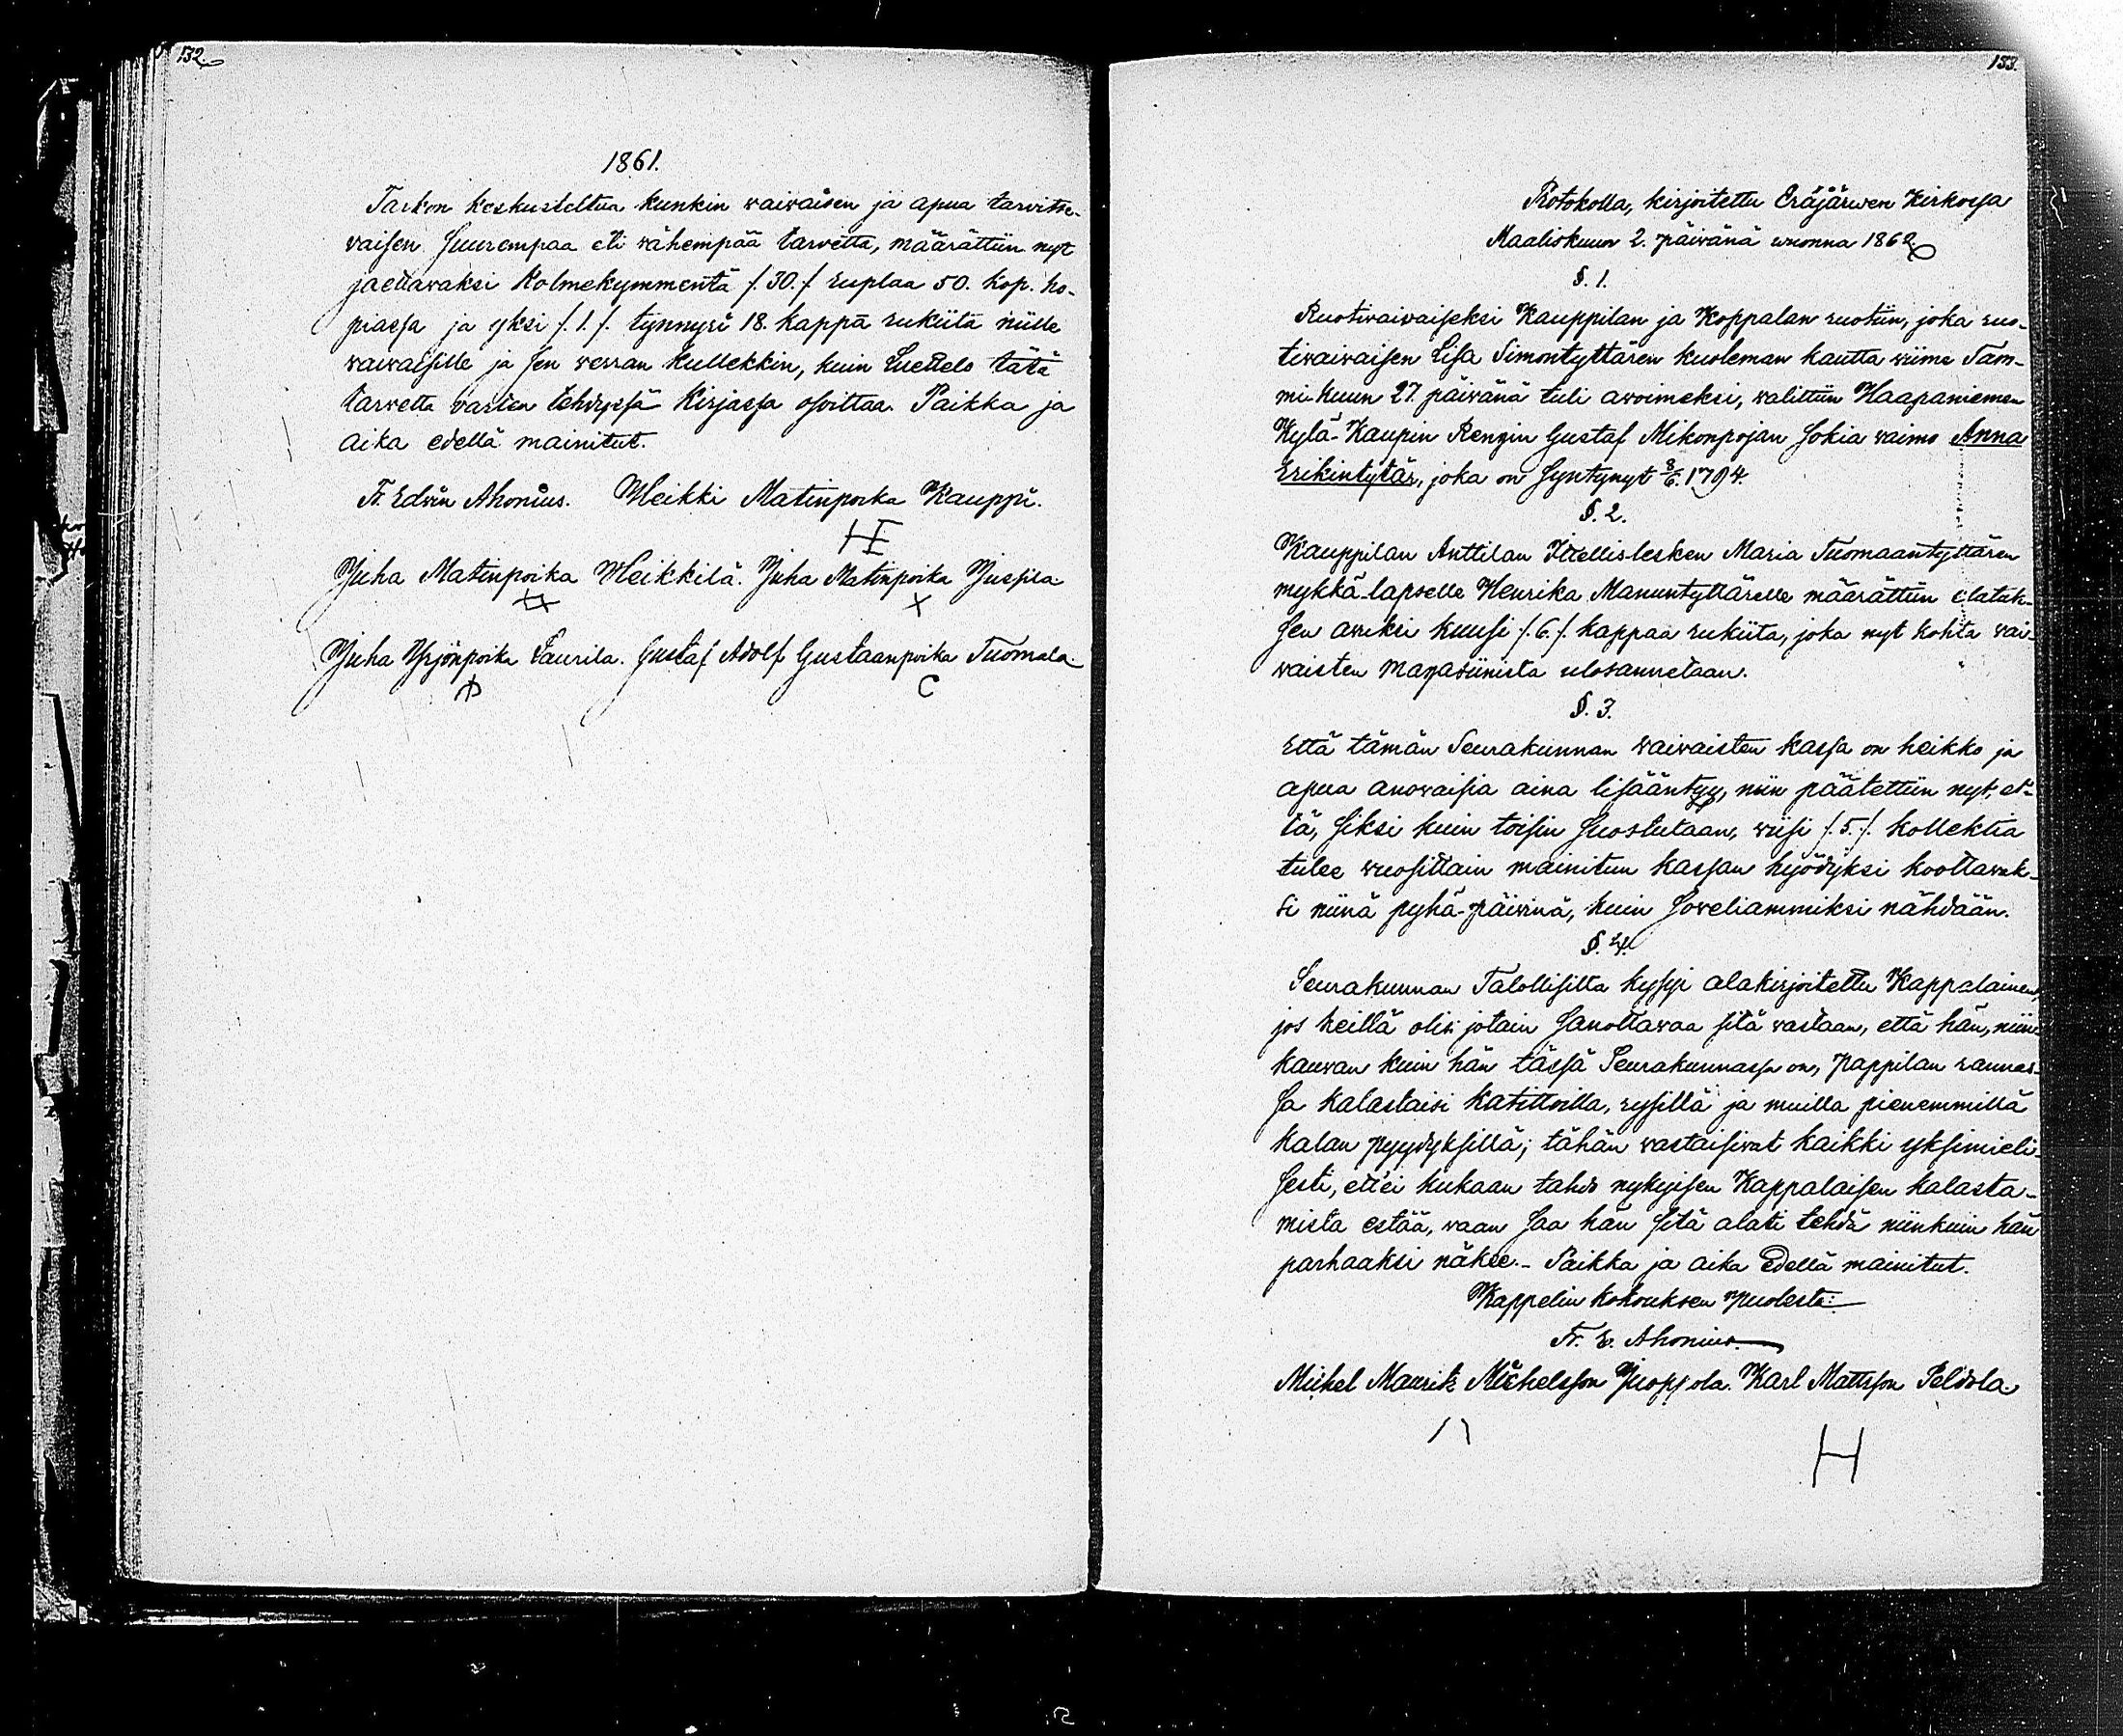 132.
1861.
Tarkon keskusteltua kunkin waiwaisen ja apua tarvitse-
vaisen suurempaa eli vähempää tarvetta, määrättiin nyt
jaettavaksi Kolmekymmentä /.30./ ruplaa 50. kop. ho-
piassa ja yksi /.1./. tynnyri 18. kappa rukiita niille
vaivaisille ja sen verran kullekkin, kuin Luettelo tätä
tarvetta varten tehdyssä Kirjassa osoittaa. Paikka ja
aika edellä mainitut.
Fr. Edvin Ahonius. Heikki Matinpoika Kauppi.
Juha Matinpoika Heikkilä. Juha Matinpoika Jussila
Juha Yrjönpoika Laurila. Gustaf Adolf Gustaanpoika Tuomala.
133.
Protokolla, kirjoitettu Eräjärwen Kirkossa
Maaliskuun 2. päivänä wuonna 1862
§. 1.
Ruotivaivaiseksi Kauppilan ja Koppalan ruotiin, joka ruo-
tivaivaisen Lisa Simontyttären kuoleman kautta wiime Tam-
mi-kuun 27. päivänä tuli avoimeksi, walittiin Haapaniemen
Kylä-Kaupin Rengin Gustaf Mikonpojan Jokia vaimo Anna
Erikintytär, joka on syntynyt 8/6. 1794.
§. 2.
Kauppilan Anttilan Itellislesken Maria Tuomaantyttären
mykkä-lapselle Henrika Manuntyttärelle määrättiin elatuk-
sen avuksi kuusi /.6./. kappaa rukiita, joka nyt kohta vai-
vaisten magasiinista ulosannetaan.
§. 3.
Että tämän Seurakunnan vaivaisten kassa on heikko ja
apua anovaisia aina lisääntyy, niin päätettiin nyt, et-
tä, siksi kuin toisin suostutaan, wiisi /.5./. kollektia
tulee wuosittain mainitun kassan hyödyksi koottavak-
si niinä pyhä-päivinä, kuin soveliammiksi nähdään.
§. 4.
Seurakunnan Talollisilta kysyi alakirjoitettu Kappalainen,
jos heillä olisi jotain sanottavaa sitä vastaan, että hän, niin
kauvan kuin hän tässä Seurakunnassa on, pappilan rannas-
sa kalastaisi katittoilla, rysillä ja muilla pienemmillä
kalan pyydyksillä; tähän vastaisivat kaikki yksimieli-
sesti, ett'ei kukaan tahdo nykyisen Kappalaisen kalasta-
mista estää, vaan saa hän sitä alati tehdä niinkuin hän
parhaaksi näkee.- Paikka ja aika Edellä mainitut.
Kappelin kokouksen puolesta:
Fr. E. Ahonius.
Mickel Maurits Michelsson Juoppola. Karl Mattsson Peldola
H